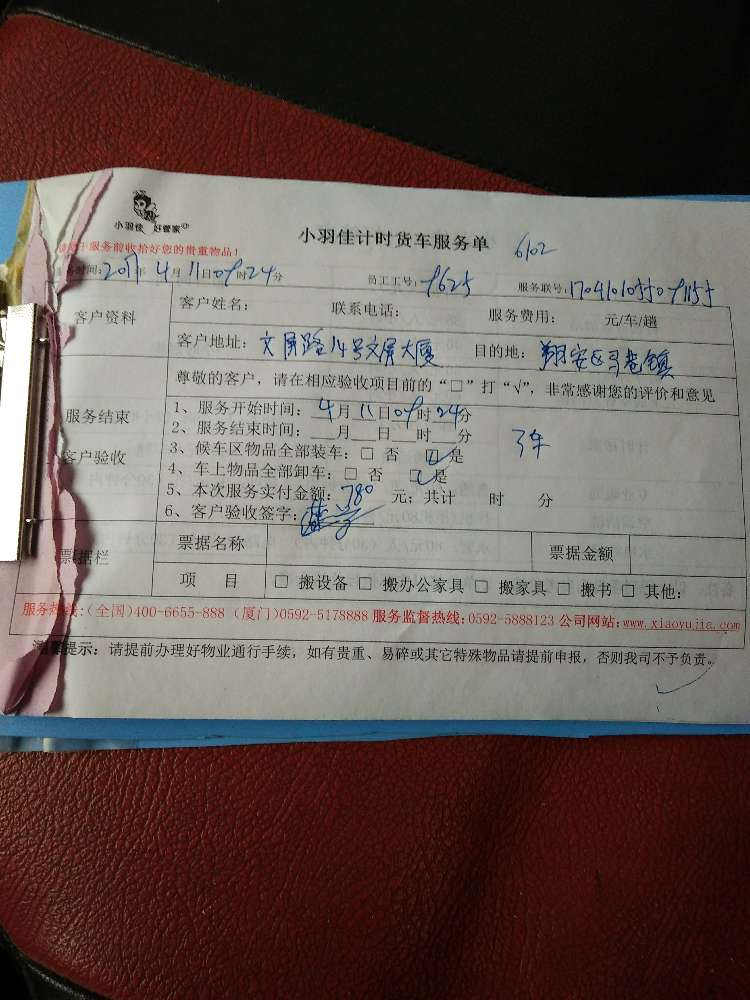 小羽佳 好管家
小羽佳计时货车服务单
6102
服务前收拾好您的贵重物品!
时间:2017年4月11日09时24分 员工工号:9625 服务联号:
客户资料
客户姓名: 联系电话: 服务费用: 元/车/趟
客户地址:文屏路14号文屏大厦 目的地:翔安区马巷镇
服务结束
客户验收
尊敬的客户,请在相应验收项目前的“□”打“√”,非常感谢您的评价和意见
1、服务开始时间:4月11日09时24分
2、服务结束时间:___月___日___时___分
3、候车区物品全部装车:□ 否 □是
4、车上物品全部卸车:□ 否 □是
5、本次服务实付金额:780元;共计 时 分
6、客户验收签字:
票据栏
票据名称 票据金额
项 目 □ 搬设备 □ 搬办公家具 □ 搬家具 □ 搬书 □ 其他:
服务热线:(全国)400-6655-888 (厦门)0592-5178888 服务监督热线:0592-5888123 公司网站:www.xiaoyujia.com
温馨提示:请提前办理好物业通行手续,如有贵重、易碎或其它特殊物品请提前申报,否则我司不予负责。